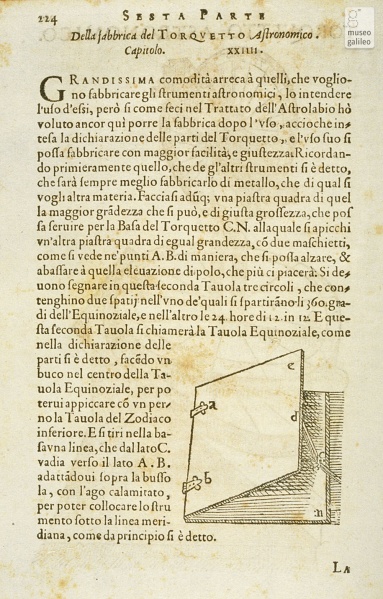 museo
galileo
224 SESTA PARTE
Della fabbrica del TORQVETTO Astronomico.
Capitolo. XXIIII.
GRANDISSIMA comodità arreca à quelli, che voglio-
no fabbricare gli strumenti astronomici, lo intendere
l'uso d'essi, però si come feci nel Trattato dell'Astrolabio hò
voluto ancor quì porre la fabbrica dopo l'vso, accioche in-
tesa la dichiarazione delle parti del Torquetto, e l'vso suo si
possa fabbricare con maggior facilità, e giustezza. Ricordan-
do primieramente quello, che de gl'altri strumenti si è detto,
che sarà sempre meglio fabbricarlo di metallo, che di qual si
vogli altra materia. Facciasi adũq; vna piastra quadra di quel
la maggior grãdezza che si può, e di giusta grossezza, che pos
sa seruire per la Basa del Torquetto C.N. alla quale si apicchi
vn'altra piastra quadra di egual grandezza, cõ due maschietti,
come si vede ne' punti A.B. di maniera, che si possa alzare, &
abassare à quella eleuazione di polo, che più ci piacerà. Si de-
uono segnare in questa seconda Tauola tre circoli, che con-
tenghino due spatij nell'vno de'quali si spartirãno li 360. gra-
di dell'Equinoziale, e nell'altro le 24 hore di 12. in 12. E que-
sta seconda Tauola si chiamerà la Tauola Equinoziale, come
nella dichiarazione delle
parti si è detto, facẽdo vn
buco nel centro della Ta-
uola Equinoziale, per po
terui appiccare cõ vn per-
no la Tauola del Zodiaco
inferiore. E si tiri nella ba-
sa vna linea, che dal lato C.
vadia verso il lato A. B.
adattãdoui sopra la busso
la, con l'ago calamitato,
per poter collocare lo stru
mento sotto la linea meri-
diana, come da principio si è detto.
e
a
d
b
:n
LA